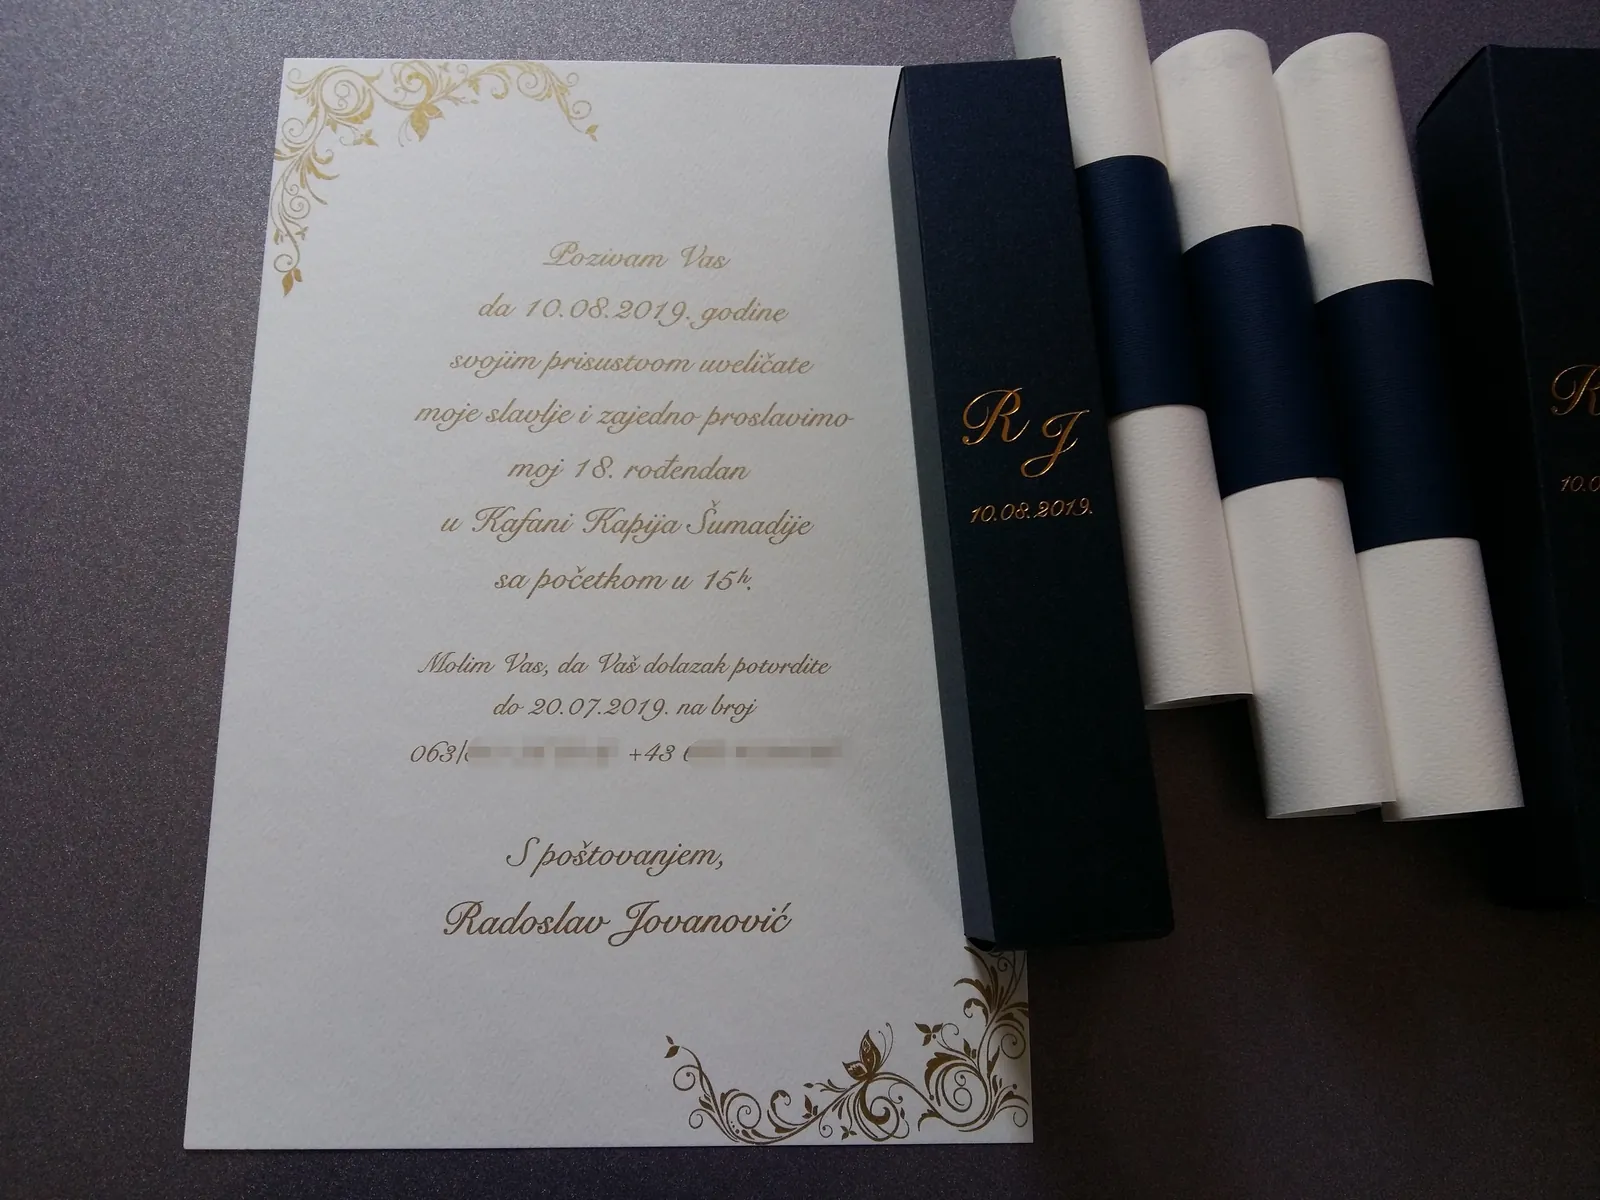 Pozivam Vas
da 10.08.2019. godine
svojim prisustvom uveličate
moje slavlje i zajedno proslavimo
moj 18. rođendan
u Kafani Kapija Šumadije
sa početkom u 15h.
Molim Vas, da Vaš dolazak potvrdite
do 20.07.2019. na broj
063/ +43
S poštovanjem,
Radoslav Jovanović
R J
10.08.2019.
R
10.0